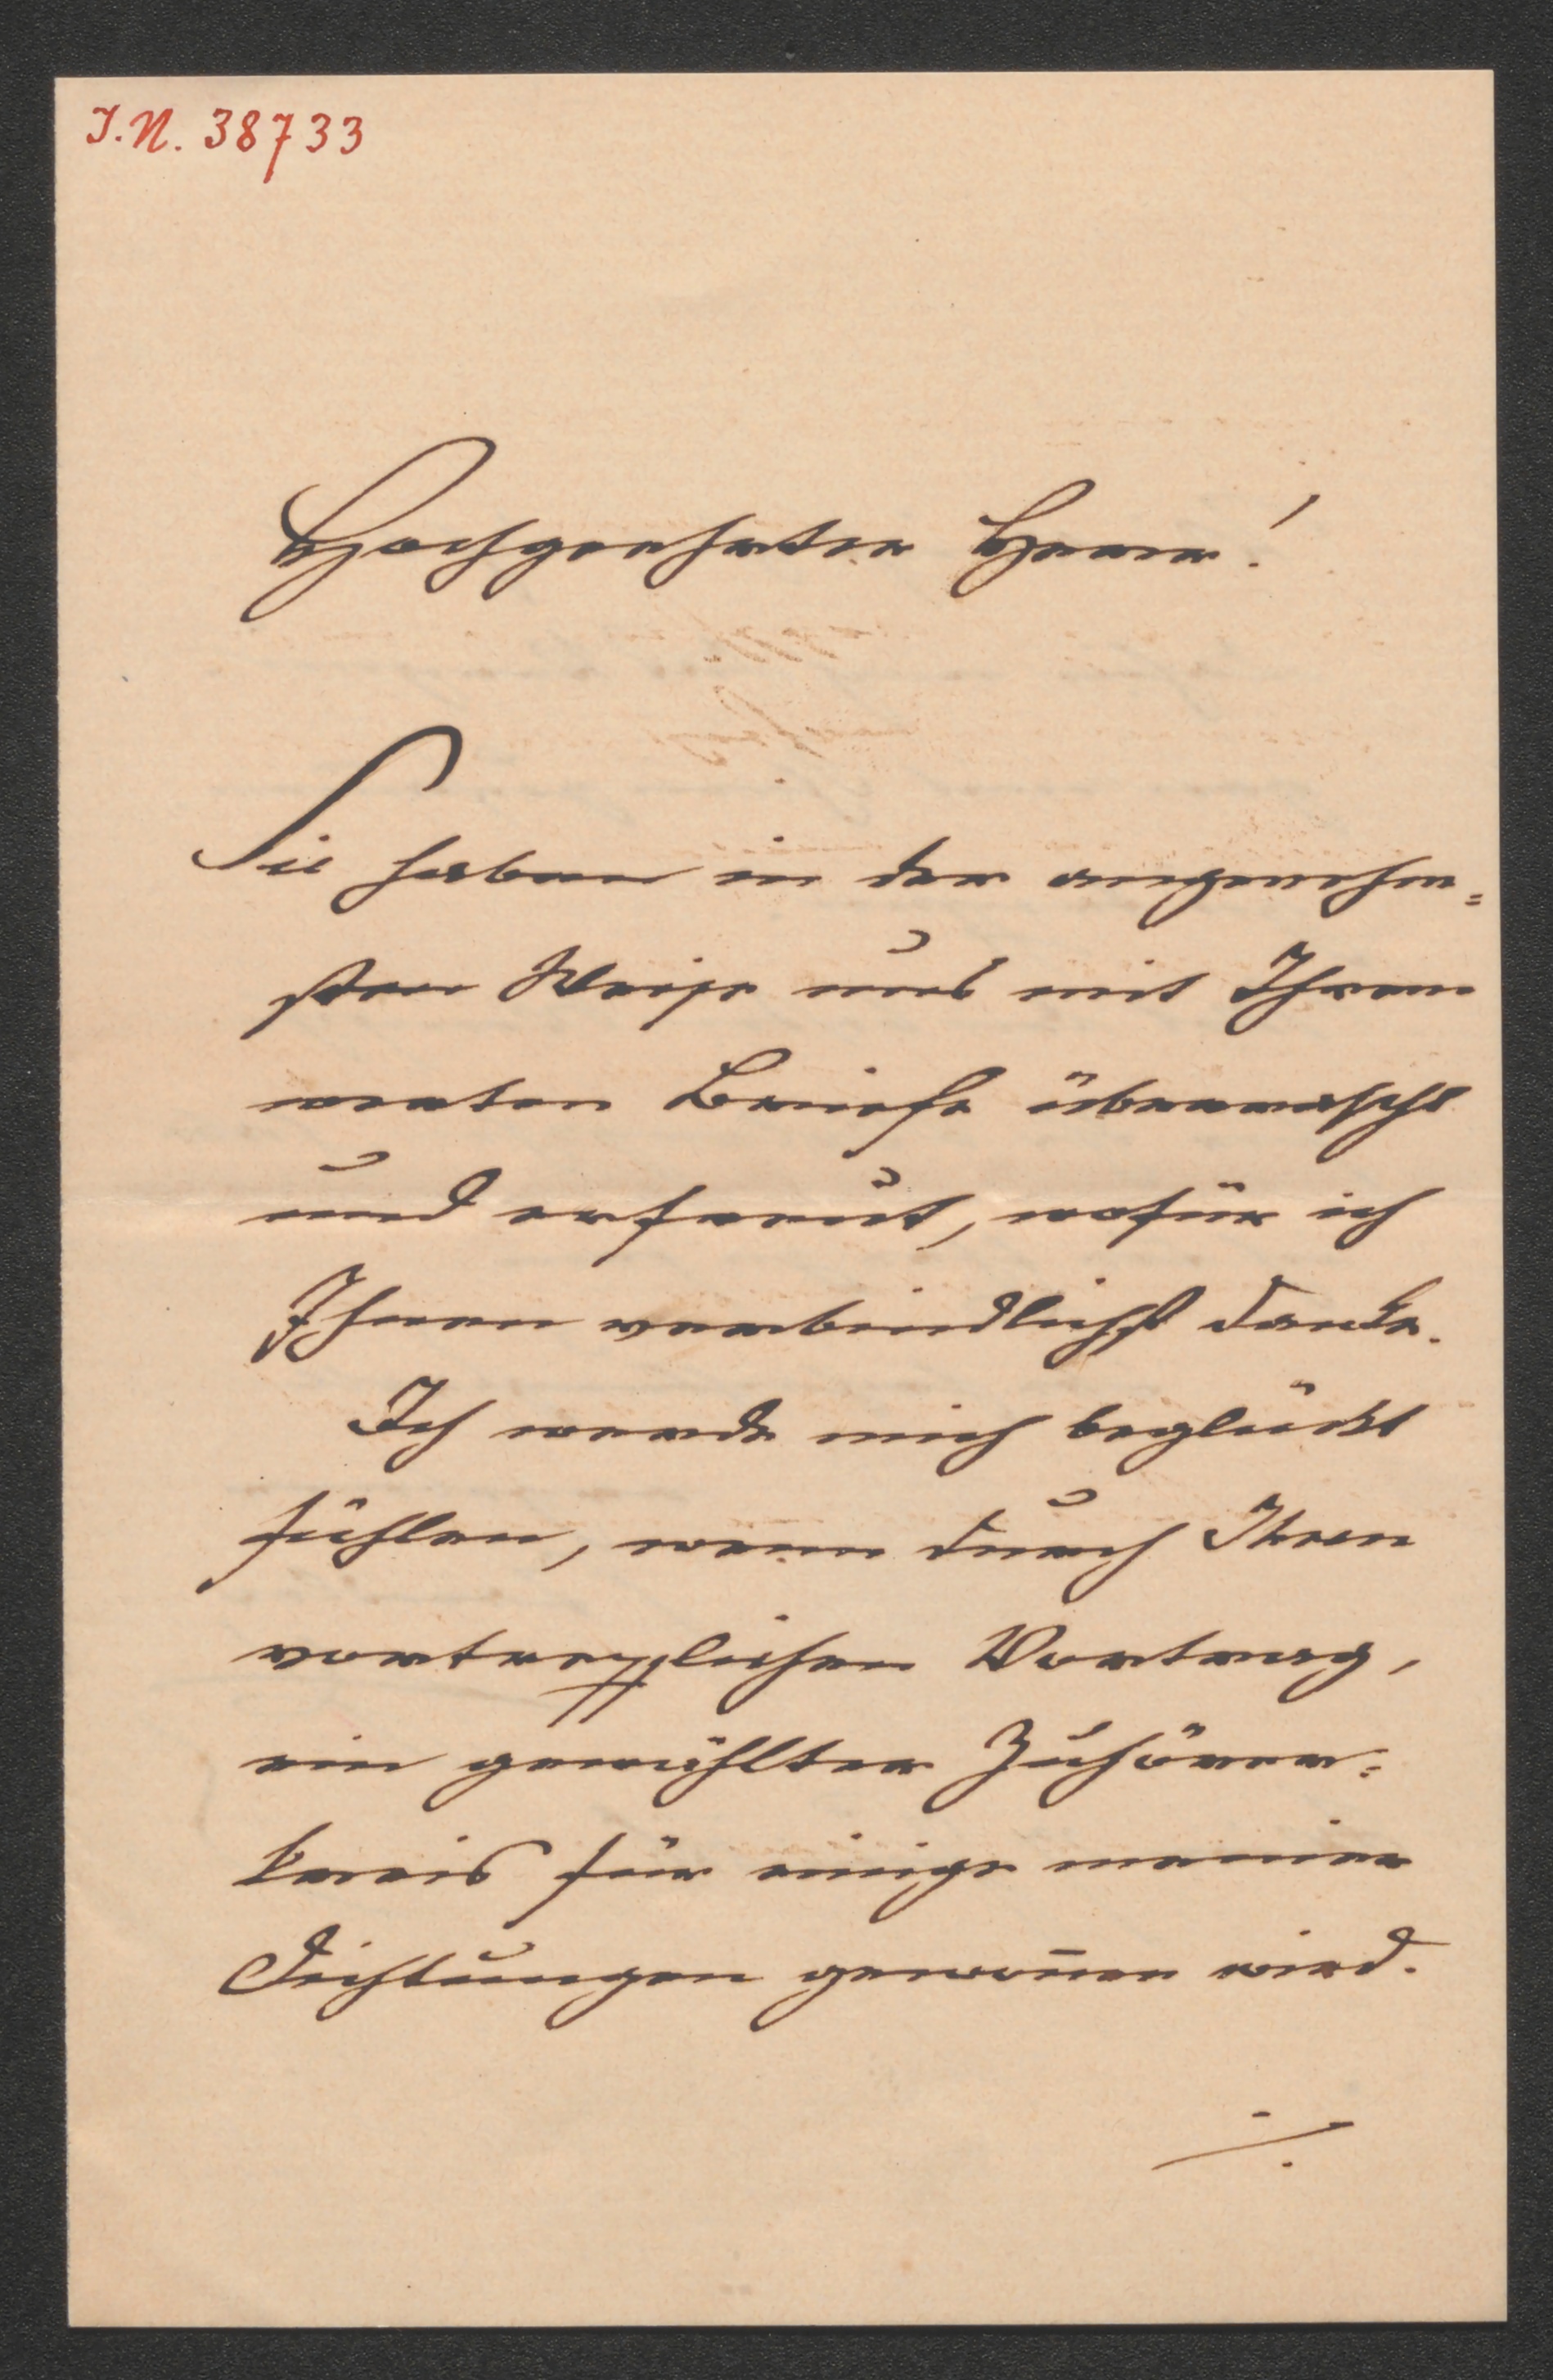 J.N. 38733
Hochgeehrter Herr!
Sie haben in der angenehm=
sten Weise uns mit Ihrem
werten Briefe überrascht
und erfreut, wofür ich
Ihnen verbindlichst danke.
Ich werde mich beglückt
fühlen, wenn durch Ihren
vortrefflichen Vortrag,
ein gewählter Zuhörer=
kreis für einige meiner
Dichtungen gewon̄en wird.
./.